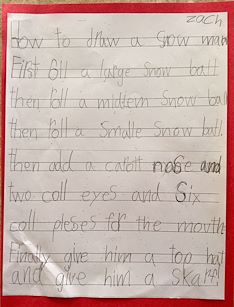 zach
How to draw a snow man
First Gill a large snow ball
then roll a midiem snow ball
then roll a Smalle snow ball.
then add a carott nose and
two coll eyes and Six
coll pleses for the mouth
Finally give him a top hat
and give him a skarf.